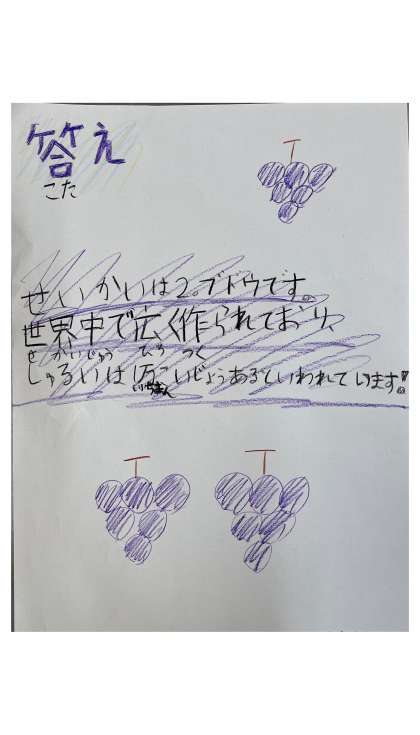 答え
こた
せいかいは2。ブドウです。
世界中で広く作られており、
せかいじゅう ひろ つく
しゅるいは1万こいじょうあるといわれています!!
いちまん